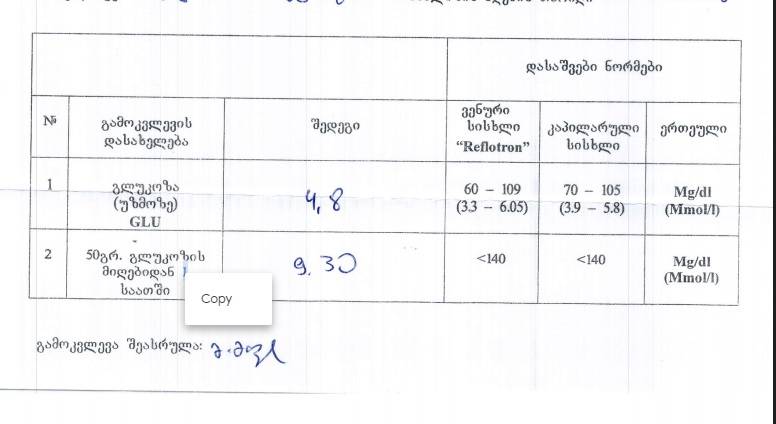 დასაშვები ნორმები
№ გამოკვლევის დასახელება შედეგი ვენური სისხლი “Reflotron” კაპილარული სისხლი ერთეული
1 გლუკოზა (უზმოზე) GLU 4,8 60 – 109 (3.3 – 6.05) 70 – 105 (3.9 – 5.8) Mg/dl (Mmol/l)
2 50გრ. გლუკოზის მიღებიდან საათში 9.30 <140 <140 Mg/dl (Mmol/l)
Copy
გამოკვლევა შეასრულა: